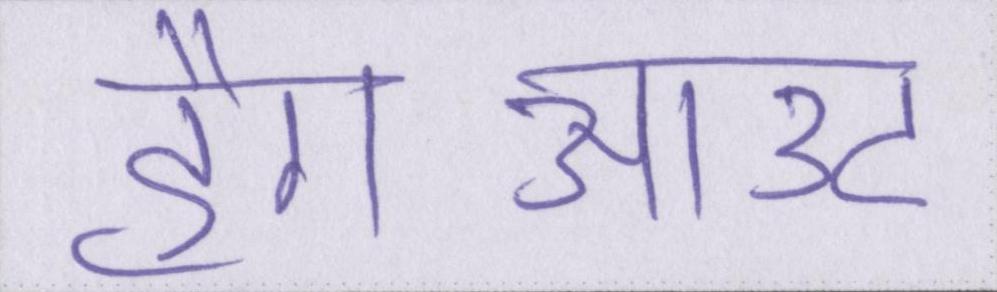 हैग आउट